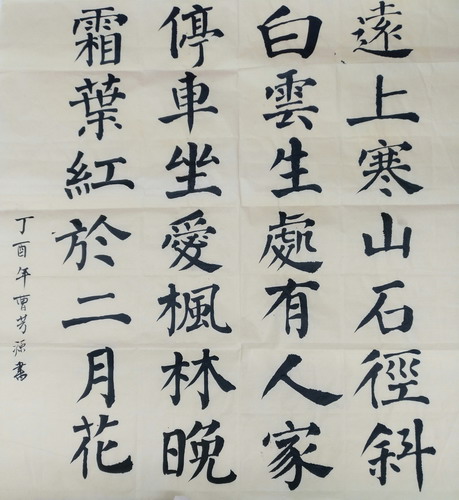 遠上寒山石徑斜
白雲生處有人家
停車坐愛楓林晚
霜葉紅於二月花
丁酉年曹芳源書